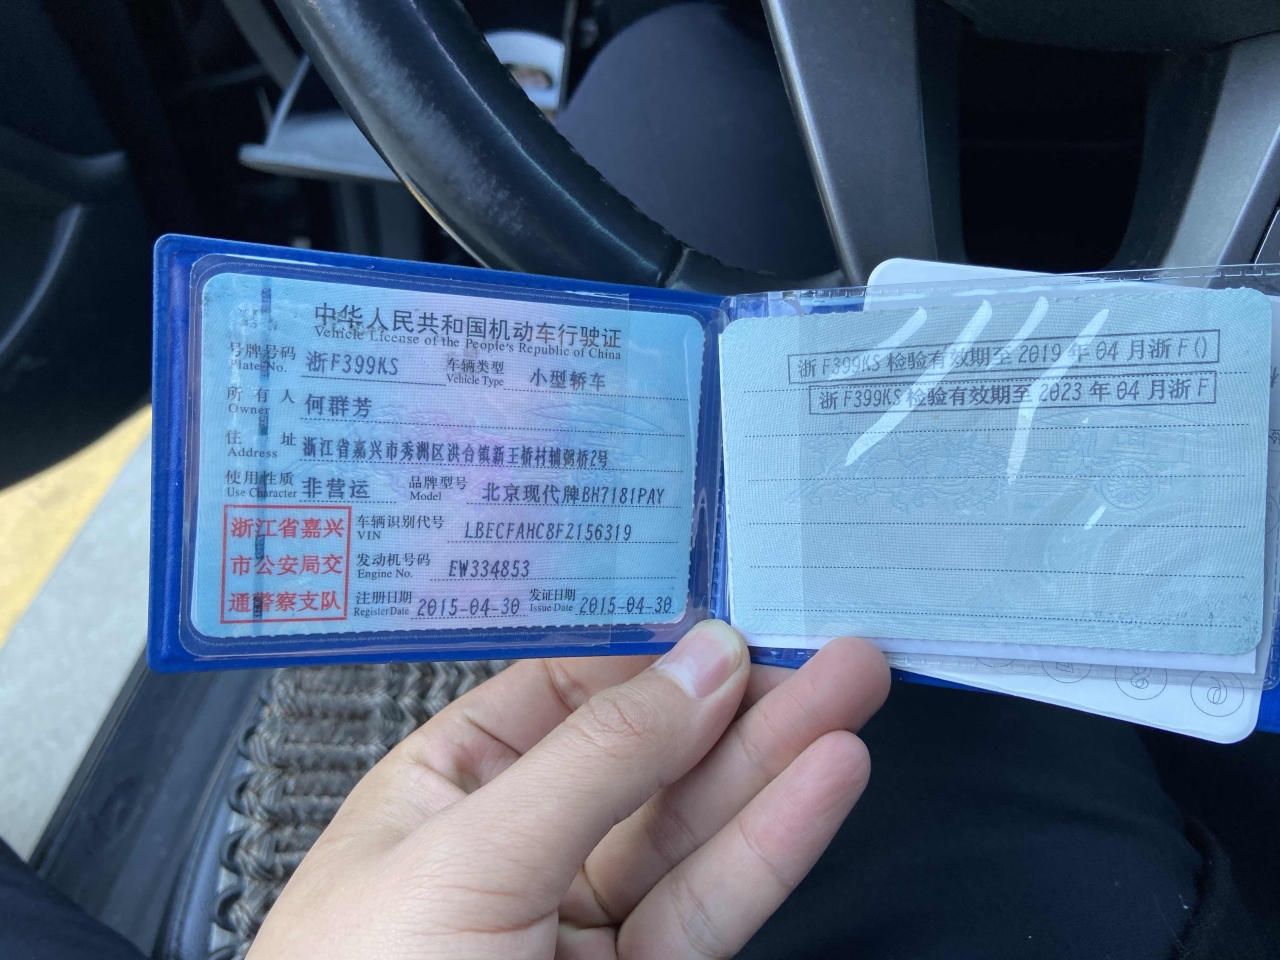 中华人民共和国机动车行驶证
Vehicle License of the People's Republic of China
号牌号码 浙F399KS 车辆类型 小型轿车
Plate No. Vehicle Type
所有人 何群芳
Owner
住址 浙江省嘉兴市秀洲区洪合镇新王桥村辅弼桥2号
Address
使用性质 非营运 品牌型号 北京现代牌BH7181PAY
Use Character Model
浙江省嘉兴
市公安局交
通警察支队
车辆识别代号 LBECFAHC8FZ156319
VIN
发动机号码 EW334853
Engine No.
注册日期 2015-04-30 发证日期 2015-04-30
Register Date Issue Date
浙F399KS 检验有效期至 2019 年 04 月浙F()
浙F399KS 检验有效期至 2023 年 04 月浙F